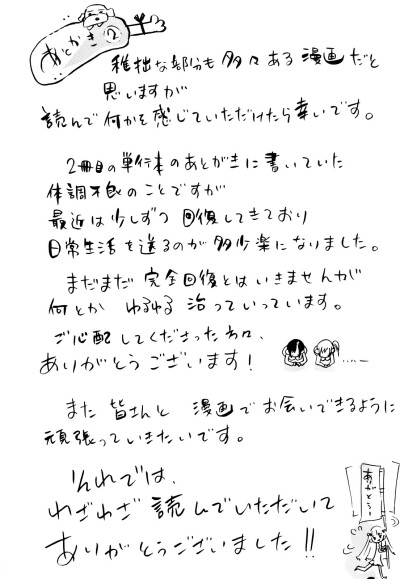 あとがき2
稚拙な部分も多々ある漫画だと
思いますが
読んで何かを感じていただけたら幸いです。
2冊目の単行本のあとがきに書いていた
体調不良のことですが
最近は少しずつ回復してきており
日常生活を送るのが多少楽になりました。
まだまだ完全回復とはいきませんが
何とかゆるゆる治っていっています。
ご心配してくださった方々、
ありがとうございます!
また皆さんと漫画でお会いできるように
頑張っていきたいです。
それでは、
わざわざ読んでいただいて
ありがとうございました!!
ありがとう!